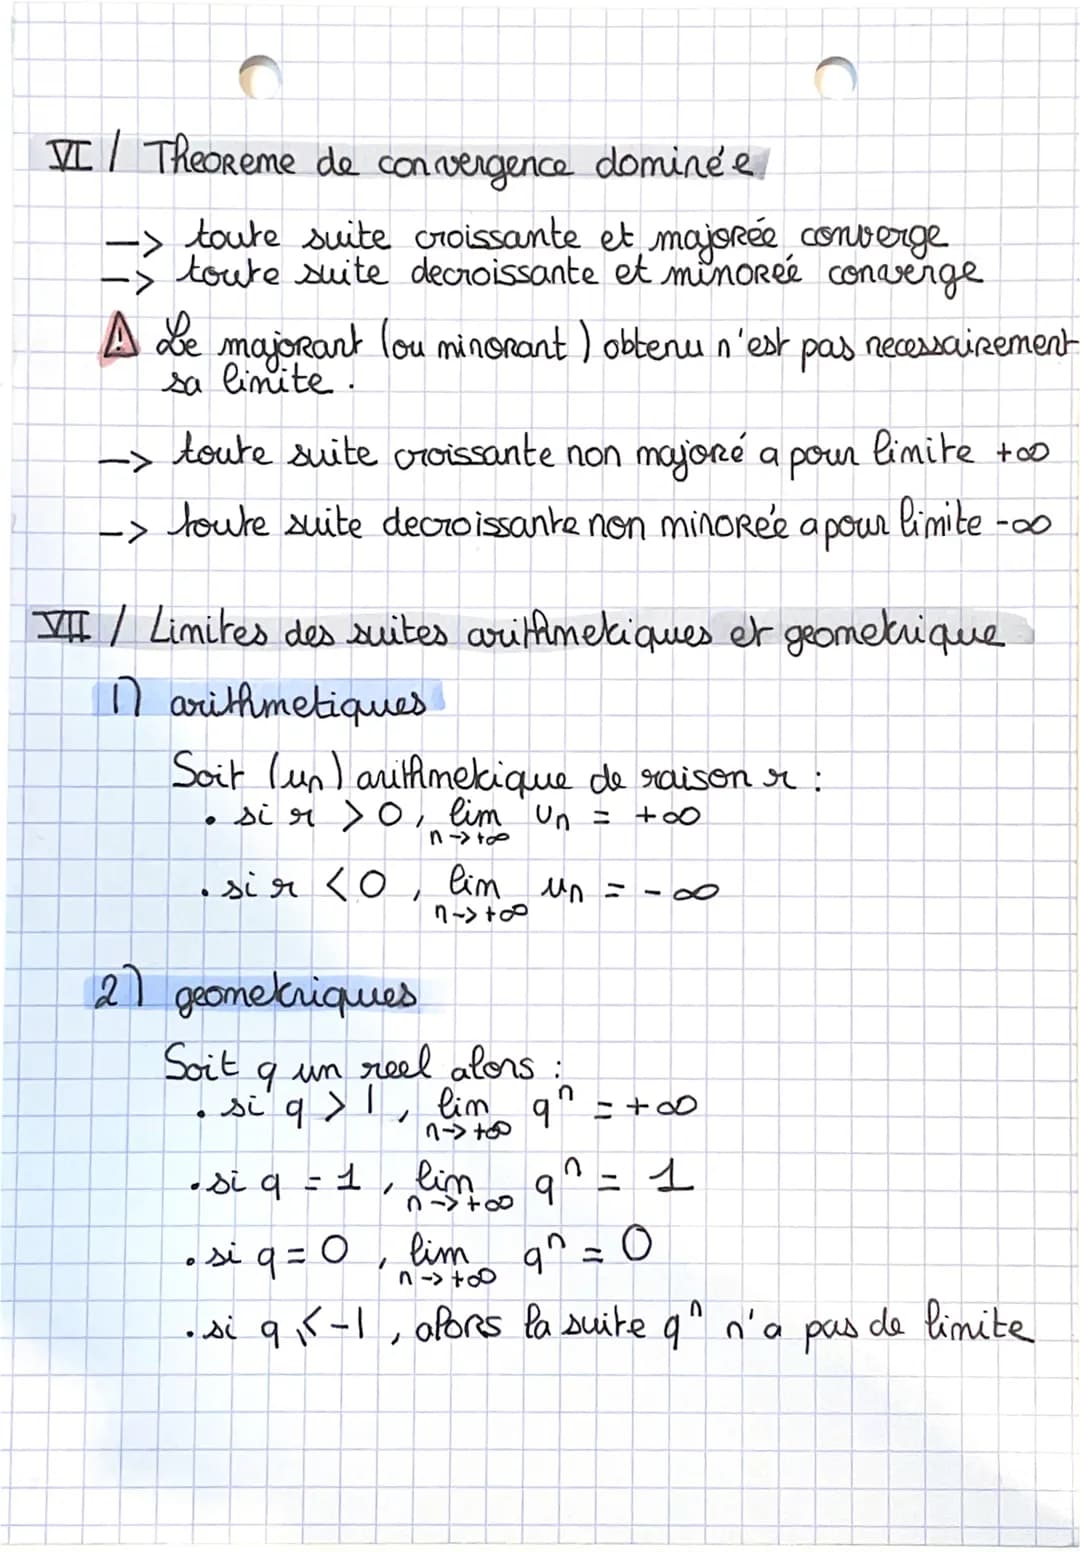 VI / Theoreme de convergence dominée
-> toute suite croissante et majorée converge
-> toute suite decroissante et minorée converge
⚠ Le majorant (ou minorant) obtenu n'est pas necessairement
sa limite.
-> toute suite croissante non majoré a pour limite +∞
-> toute suite decroissante non minorée a pour limite -∞
VII / Limites des suites arithmetiques et geometrique
1) arithmetiques
Soit (un) arithmetique de raison r :
• si r > 0, lim un = +∞
n->+∞
• si r < 0, lim un = -∞
n->+∞
2) geometriques
Soit q un reel alors :
• si q > 1, lim qⁿ = +∞
n->+∞
• si q = 1, lim qⁿ = 1
n->+∞
• si q = 0, lim qⁿ = 0
n->+∞
• si q ⩽ -1, alors la suite qⁿ n'a pas de limite